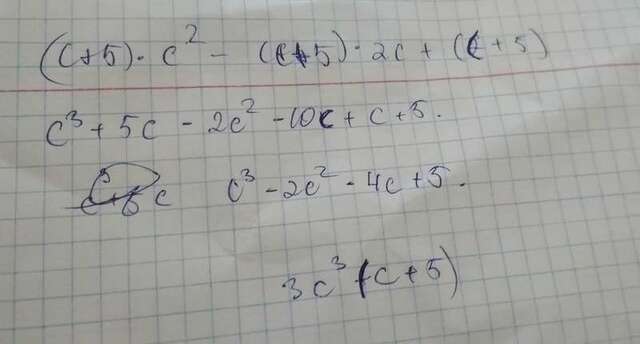 (c+5)·c² - (c+5)·2c + (c+5)
c³+5c - 2c² - 10c + c + 5.
c³ - 2c² - 4c + 5.
3c³ (c+5)